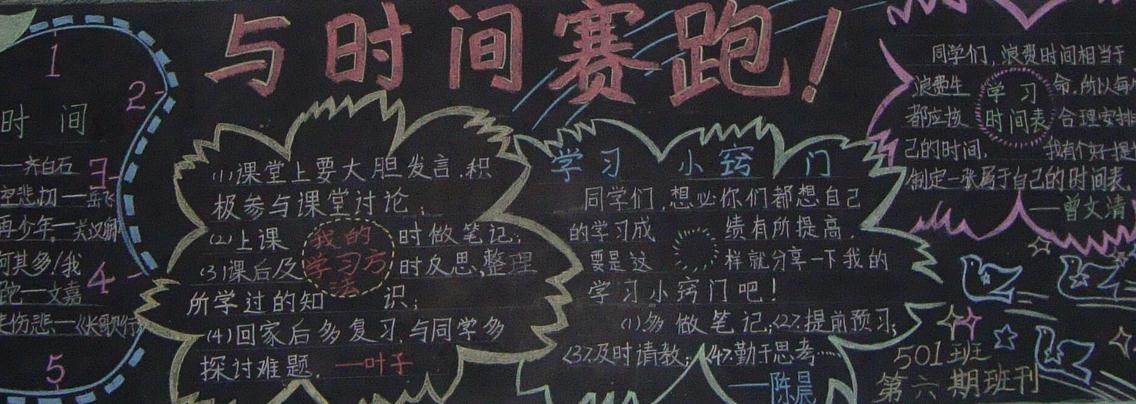 与时间赛跑！
1
2
3
4
5
时间
——齐白石
空悲切——岳飞
再少年——关汉卿
何其多！我
跑——文嘉
伤悲——《长歌行
(1)课堂上要大胆发言，积
极参与课堂讨论；
(2)上课时做笔记；
(3)课后及时反思，整理
所学过的知识；
(4)回家后多复习，与同学多
探讨难题。——叶子
我的
学习方
法
学习小窍门
同学们，想必你们都想自己
的学习成绩有所提高，
要是这样就分享一下我的
学习小窍门吧！
(1)多做笔记；(2)提前预习；
(3)及时请教；(4)勤于思考……
——陈晨
同学们，浪费时间相当于
浪费生命，所以每
都应该合理安排
己的时间。我有个好提
制定一张属于自己的时间表。
——曾文清
学习
时间表
501班
第六期班刊